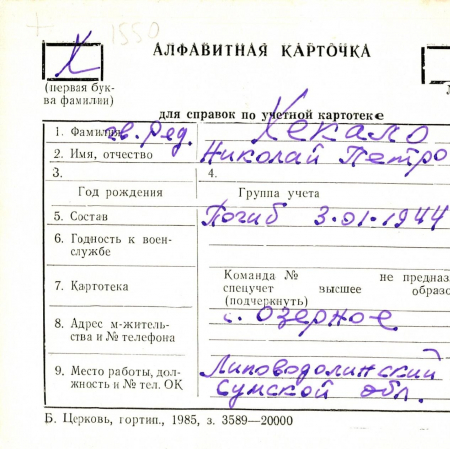 1550
АЛФАВИТНАЯ КАРТОЧКА
Х
(первая бук-
ва фамилии)
для справок по учетной картотеке
1. Фамилия гв. ряд. Хекало
2. Имя, отчество Николай Петро
3. 4.
Год рождения Группа учета
5. Состав Погиб 3.01.1944
6. Годность к воен-
службе
Команда № не предназ
7. Картотека спецучет высшее образо
(подчеркнуть)
8. Адрес м-житель-
ства и № телефона с. Озерное
9. Место работы, дол-
жность и № тел. ОК Липоводолинский
Сумской обл.
Б. Церковь, гортип., 1985, з. 3589—20000